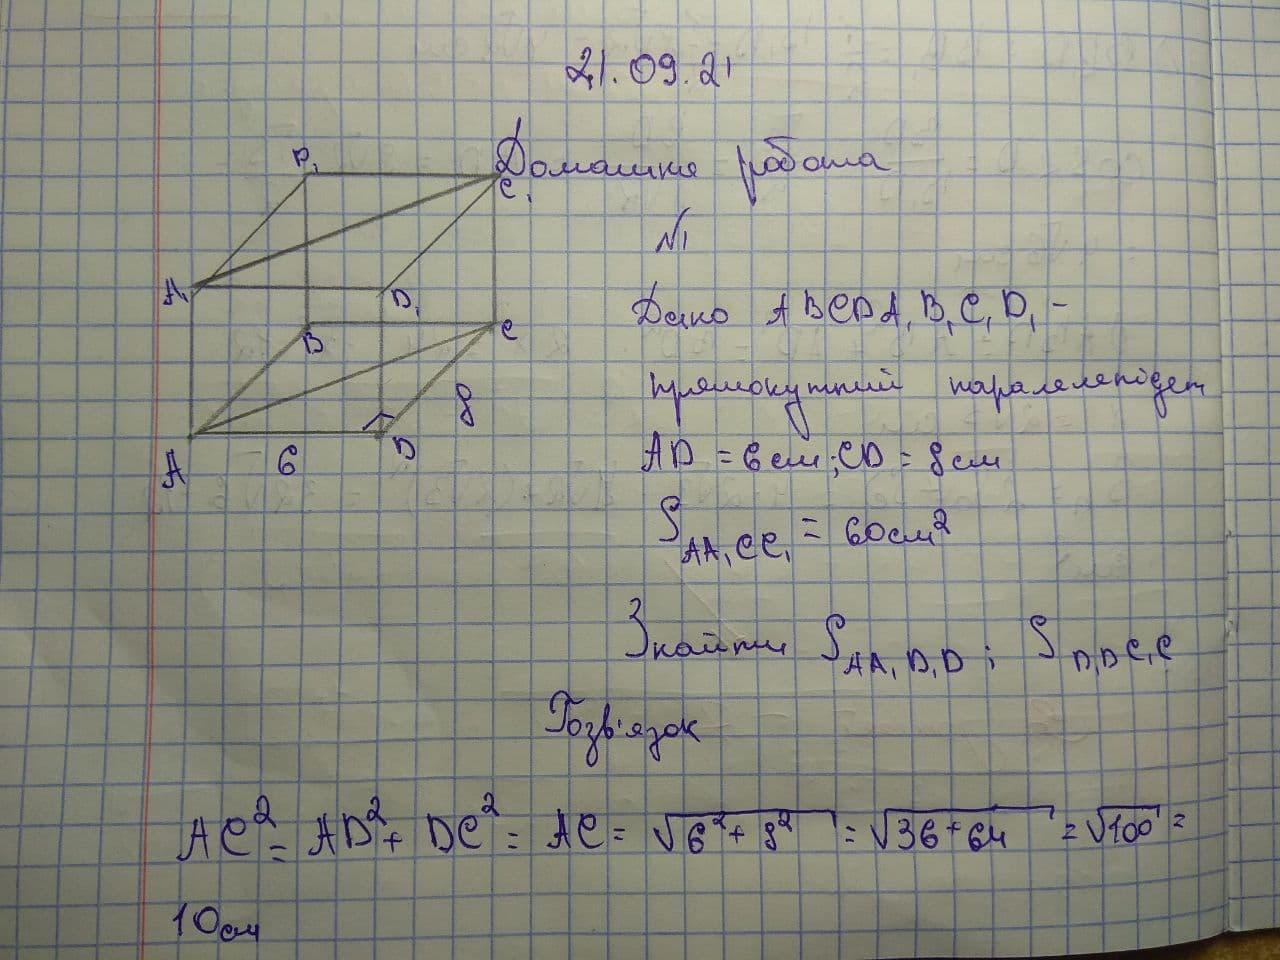 21.09.21
Домашня робота
№1
B₁
C₁
A₁
D₁
B
C
8
A
6
D
Дано ABCDA₁B₁C₁D₁ -
прямокутний паралелепідет
AD = 6 см; CD = 8 см
S AA₁CC₁ = 60 см²
Знайти S AA₁D₁D ; S D₁DC₁C
Розв'язок
AC² = AD² + DC² = AC = √6² + 8² = √36 + 64 = √100 =
10 см